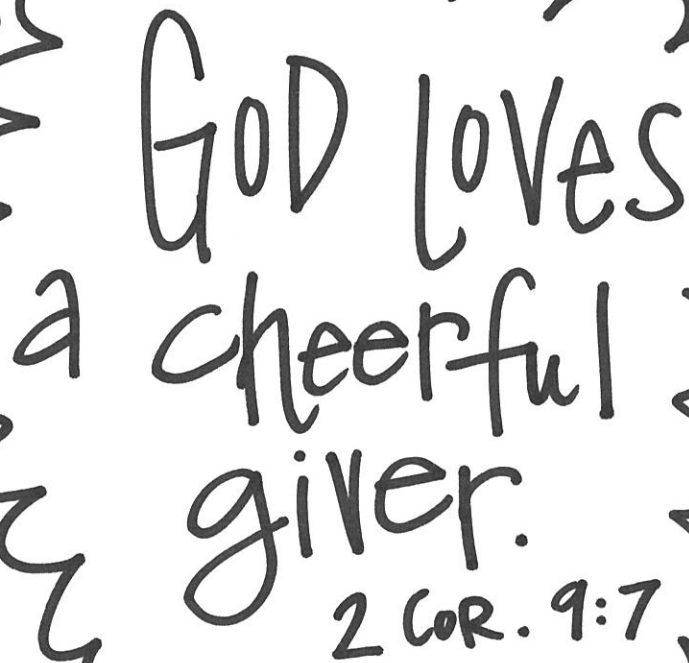 GOD LOVES
a cheerful
giver.
2 COR. 9:7